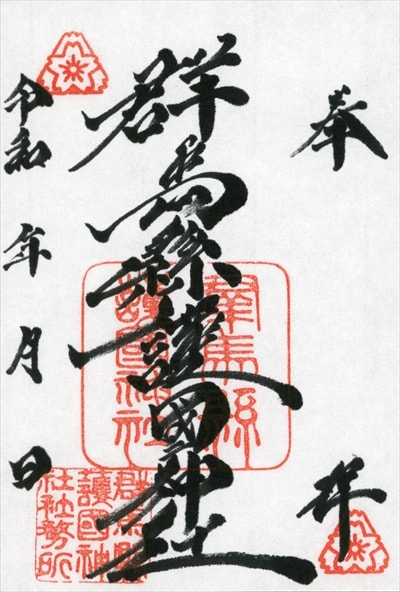 奉拝
群馬縣護國神社
令和 年 月 日
群馬縣護國神社
群馬縣護國神社社務所